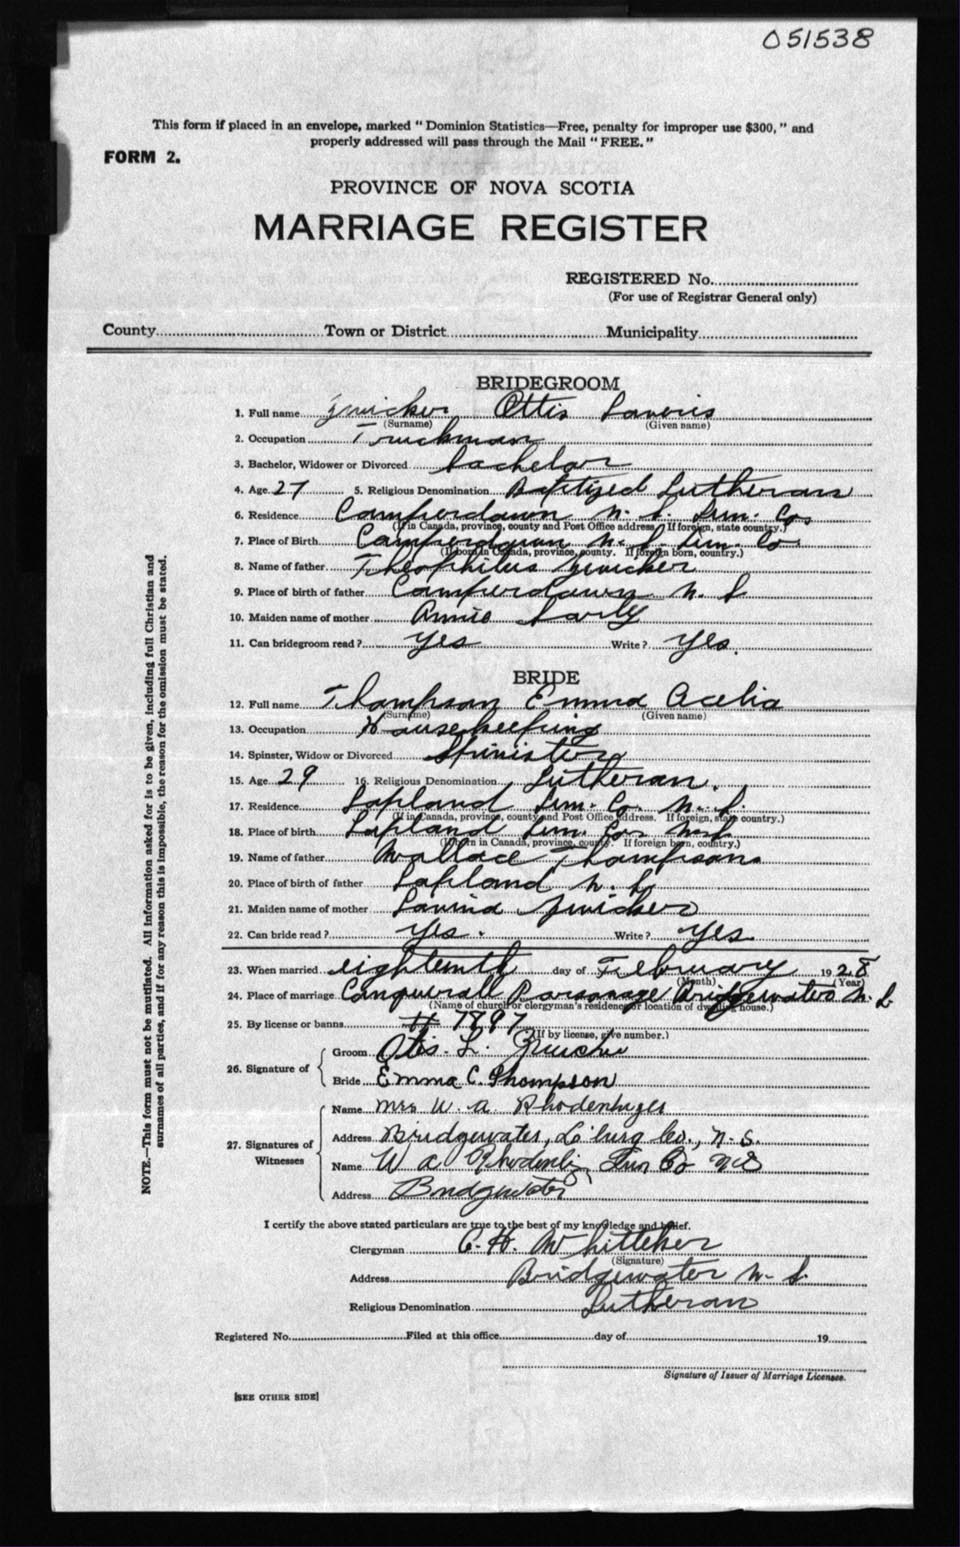 051538
This form if placed in an envelope, marked "Dominion Statistics—Free, penalty for improper use $300," and
properly addressed will pass through the Mail "FREE."
FORM 2.
PROVINCE OF NOVA SCOTIA
MARRIAGE REGISTER
REGISTERED No.
(For use of Registrar General only)
County Town or District Municipality
BRIDEGROOM
1. Full name Zwicker Ottis Laveris
(Surname) (Given name)
2. Occupation Truckman
3. Bachelor, Widower or Divorced bachelor
4. Age 27 5. Religious Denomination Baptized Lutheran
6. Residence Camperdown N. S. Lun. Co.
(If in Canada, province, county and Post Office address. If foreign, state country.)
7. Place of Birth Camperdown N. S. Lun. Co
(If born in Canada, province, county. If foreign born, country.)
8. Name of father Theophilus Zwicker
9. Place of birth of father Camperdown N. S
10. Maiden name of mother Annie
11. Can bridegroom read? yes Write? yes.
BRIDE
12. Full name Thompson Emma Acelia
(Surname) (Given name)
13. Occupation Housekeeping
14. Spinster, Widow or Divorced Spinister
15. Age 29 16. Religious Denomination Lutheran.
17. Residence Lapland Lun. Co. N. S.
(If in Canada, province, county and Post Office address. If foreign, state country.)
18. Place of birth Lapland Lun. Co. N. S.
(If born in Canada, province, county. If foreign born, country.)
19. Name of father Wallace Thompson
20. Place of birth of father Lapland N. S.
21. Maiden name of mother Lavina Zwicker
22. Can bride read? yes. Write? yes
23. When married eighteenth day of February 1928
(Month) (Year)
24. Place of marriage Conquerall Parsonage Bridgewater N. S.
(Name of church or clergyman's residence or location of dwelling house.)
25. By license or banns # 7897
(If by license, give number.)
26. Signature of
Groom Otis. L. Zwicker
Bride Emma C. Thompson
27. Signatures of Witnesses
Name Mrs W. A. Rhodenhizer
Address Bridgewater, L'burg Co., N. S.
Name W A Lun Co NS
Address Bridgewater
I certify the above stated particulars are true to the best of my knowledge and belief.
Clergyman C. H. Whitteker
(Signature)
Address Bridgewater N. S.
Religious Denomination Lutheran
Registered No. Filed at this office day of 19
Signature of Issuer of Marriage Licenses.
[SEE OTHER SIDE]
NOTE.—This form must not be mutilated. All information asked for is to be given, including full Christian and
surnames of all parties, and if for any reason this is impossible, the reason for the omission must be stated.